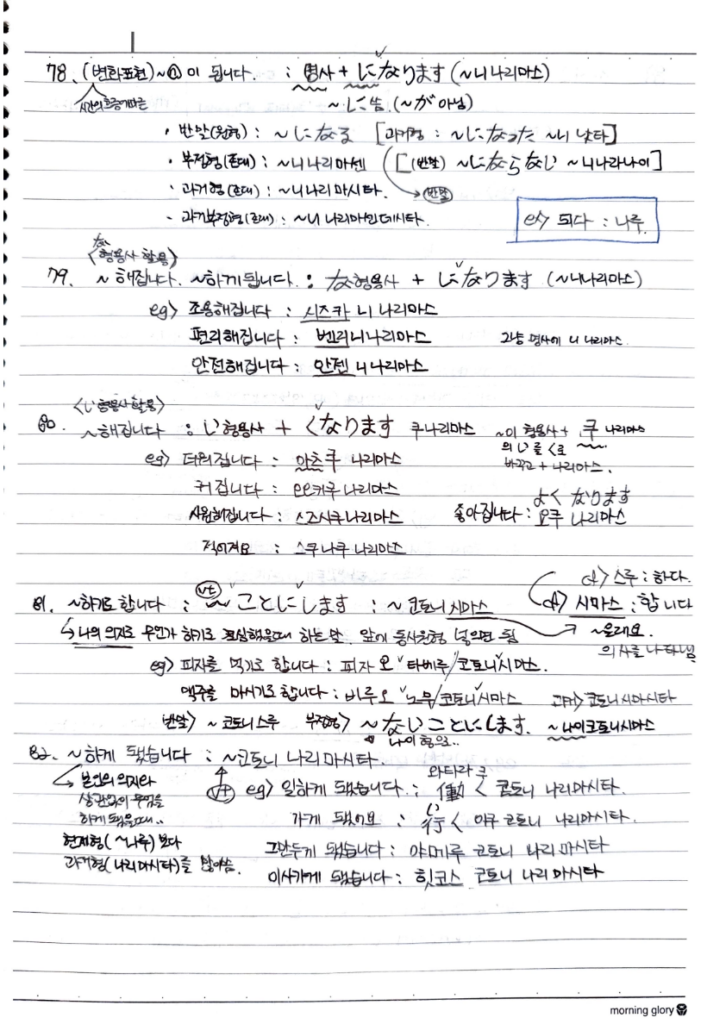 78. (변화표현) ~ⓝ이 됩니다. : 명사 + になります (~니 나리마스)
시간의 흐름에따른
~に님. (~が 아님)
· 반말(원형) : ~になる [과거형 : ~になった ~니 낫타]
· 부정형(존대) : ~니나리마센 ([(반말) ~にならない ~니나라나이]
· 과거형(존대) : ~니나리마시타. 반말
· 과거부정형(존대) : ~니 나리마센데시타. cf> 되다 : 나루.
<な형용사 활용>
79. ~해집니다. ~하게 됩니다. : な형용사 + になります (~니나리마스)
eg> 조용해집니다 : 시즈카 니 나리마스
편리해집니다 : 벤리니나리마스 그냥 명사에 니 나리마스.
안전해집니다 : 안젠 니 나리마스
<い형용사활용>
80. ~해집니다 : い형용사 + くなります 쿠나리마스 ~이 형용사 + 쿠 나리마스
의 い를 く로
바꾸고 + 나리마스.
eg> 더워집니다 : 아츠쿠 나리마스
커집니다 : 오오키쿠 나리마스 よくなります
시원해집니다 : 스즈시쿠나리마스 좋아집니다 : 요쿠 나리마스
적어져요 : 스쿠나쿠 나리마스
cf> 스루 : 하다.
81. ~하기로 합니다 : vt ~ことにします : ~ 코토니 시마스 cf> 시마스 : 합니다
나의 의지로 무언가 하기로 결심했을때 하는 말. 앞에 동사원형 넣으면 됨 ~을래요.
의사를 나타냄
eg> 피자를 먹기로 합니다 : 피자 오 타베루/코토니시마스.
맥주를 마시기로 합니다 : 비루오 노무/코토니시마스 과거> 코토니시마시타
반말> ~ 코토니 스루 부정형> ~ないことにします. ~나이코토니시마스
나이형으로..
82. ~하게 됐습니다 : ~코토니 나리마시타.
vt
본인의 의지와
상관없이 무언을
하게 됐을때..
현재형(~나루) 보다
과거형(나리마시타)를 많이씀.
와타라쿠
eg> 일하게 됐습니다. : 働く 코토니 나리마시타.
い
가게 됐어요 : 行く 이쿠 코토니 나리마시타.
그만두게 됐습니다 : 야메루 코토니 나리마시타
이사가게 됐습니다 : 힛코스 코토니 나리마시타
morning glory